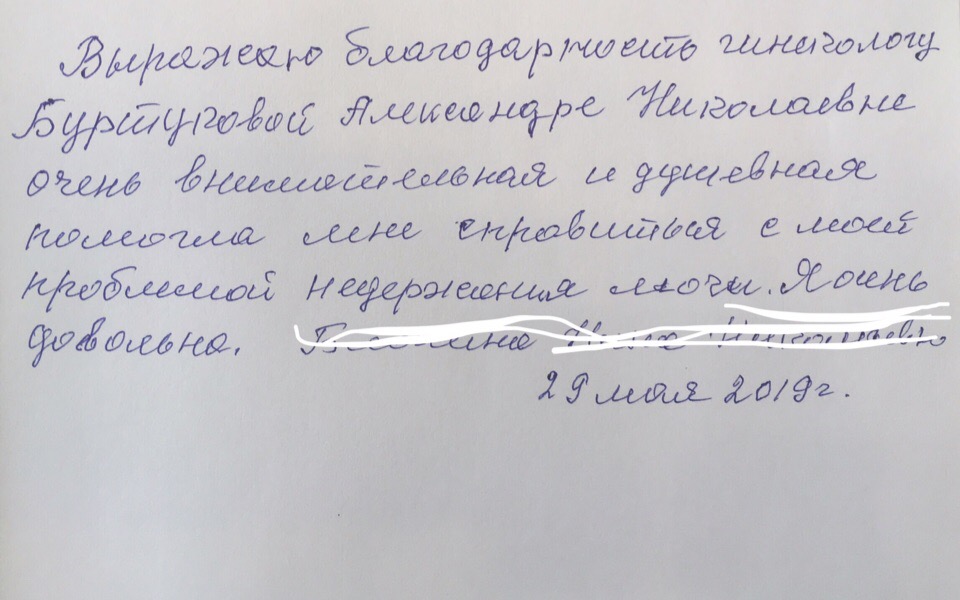 Выражаю благодарность гинекологу
Буртуговой Александре Николаевне
очень внимательная и душевная
помогла мне справиться с моей
проблемой недержания мочи. Я очень
довольна.
29 мая 2019г.